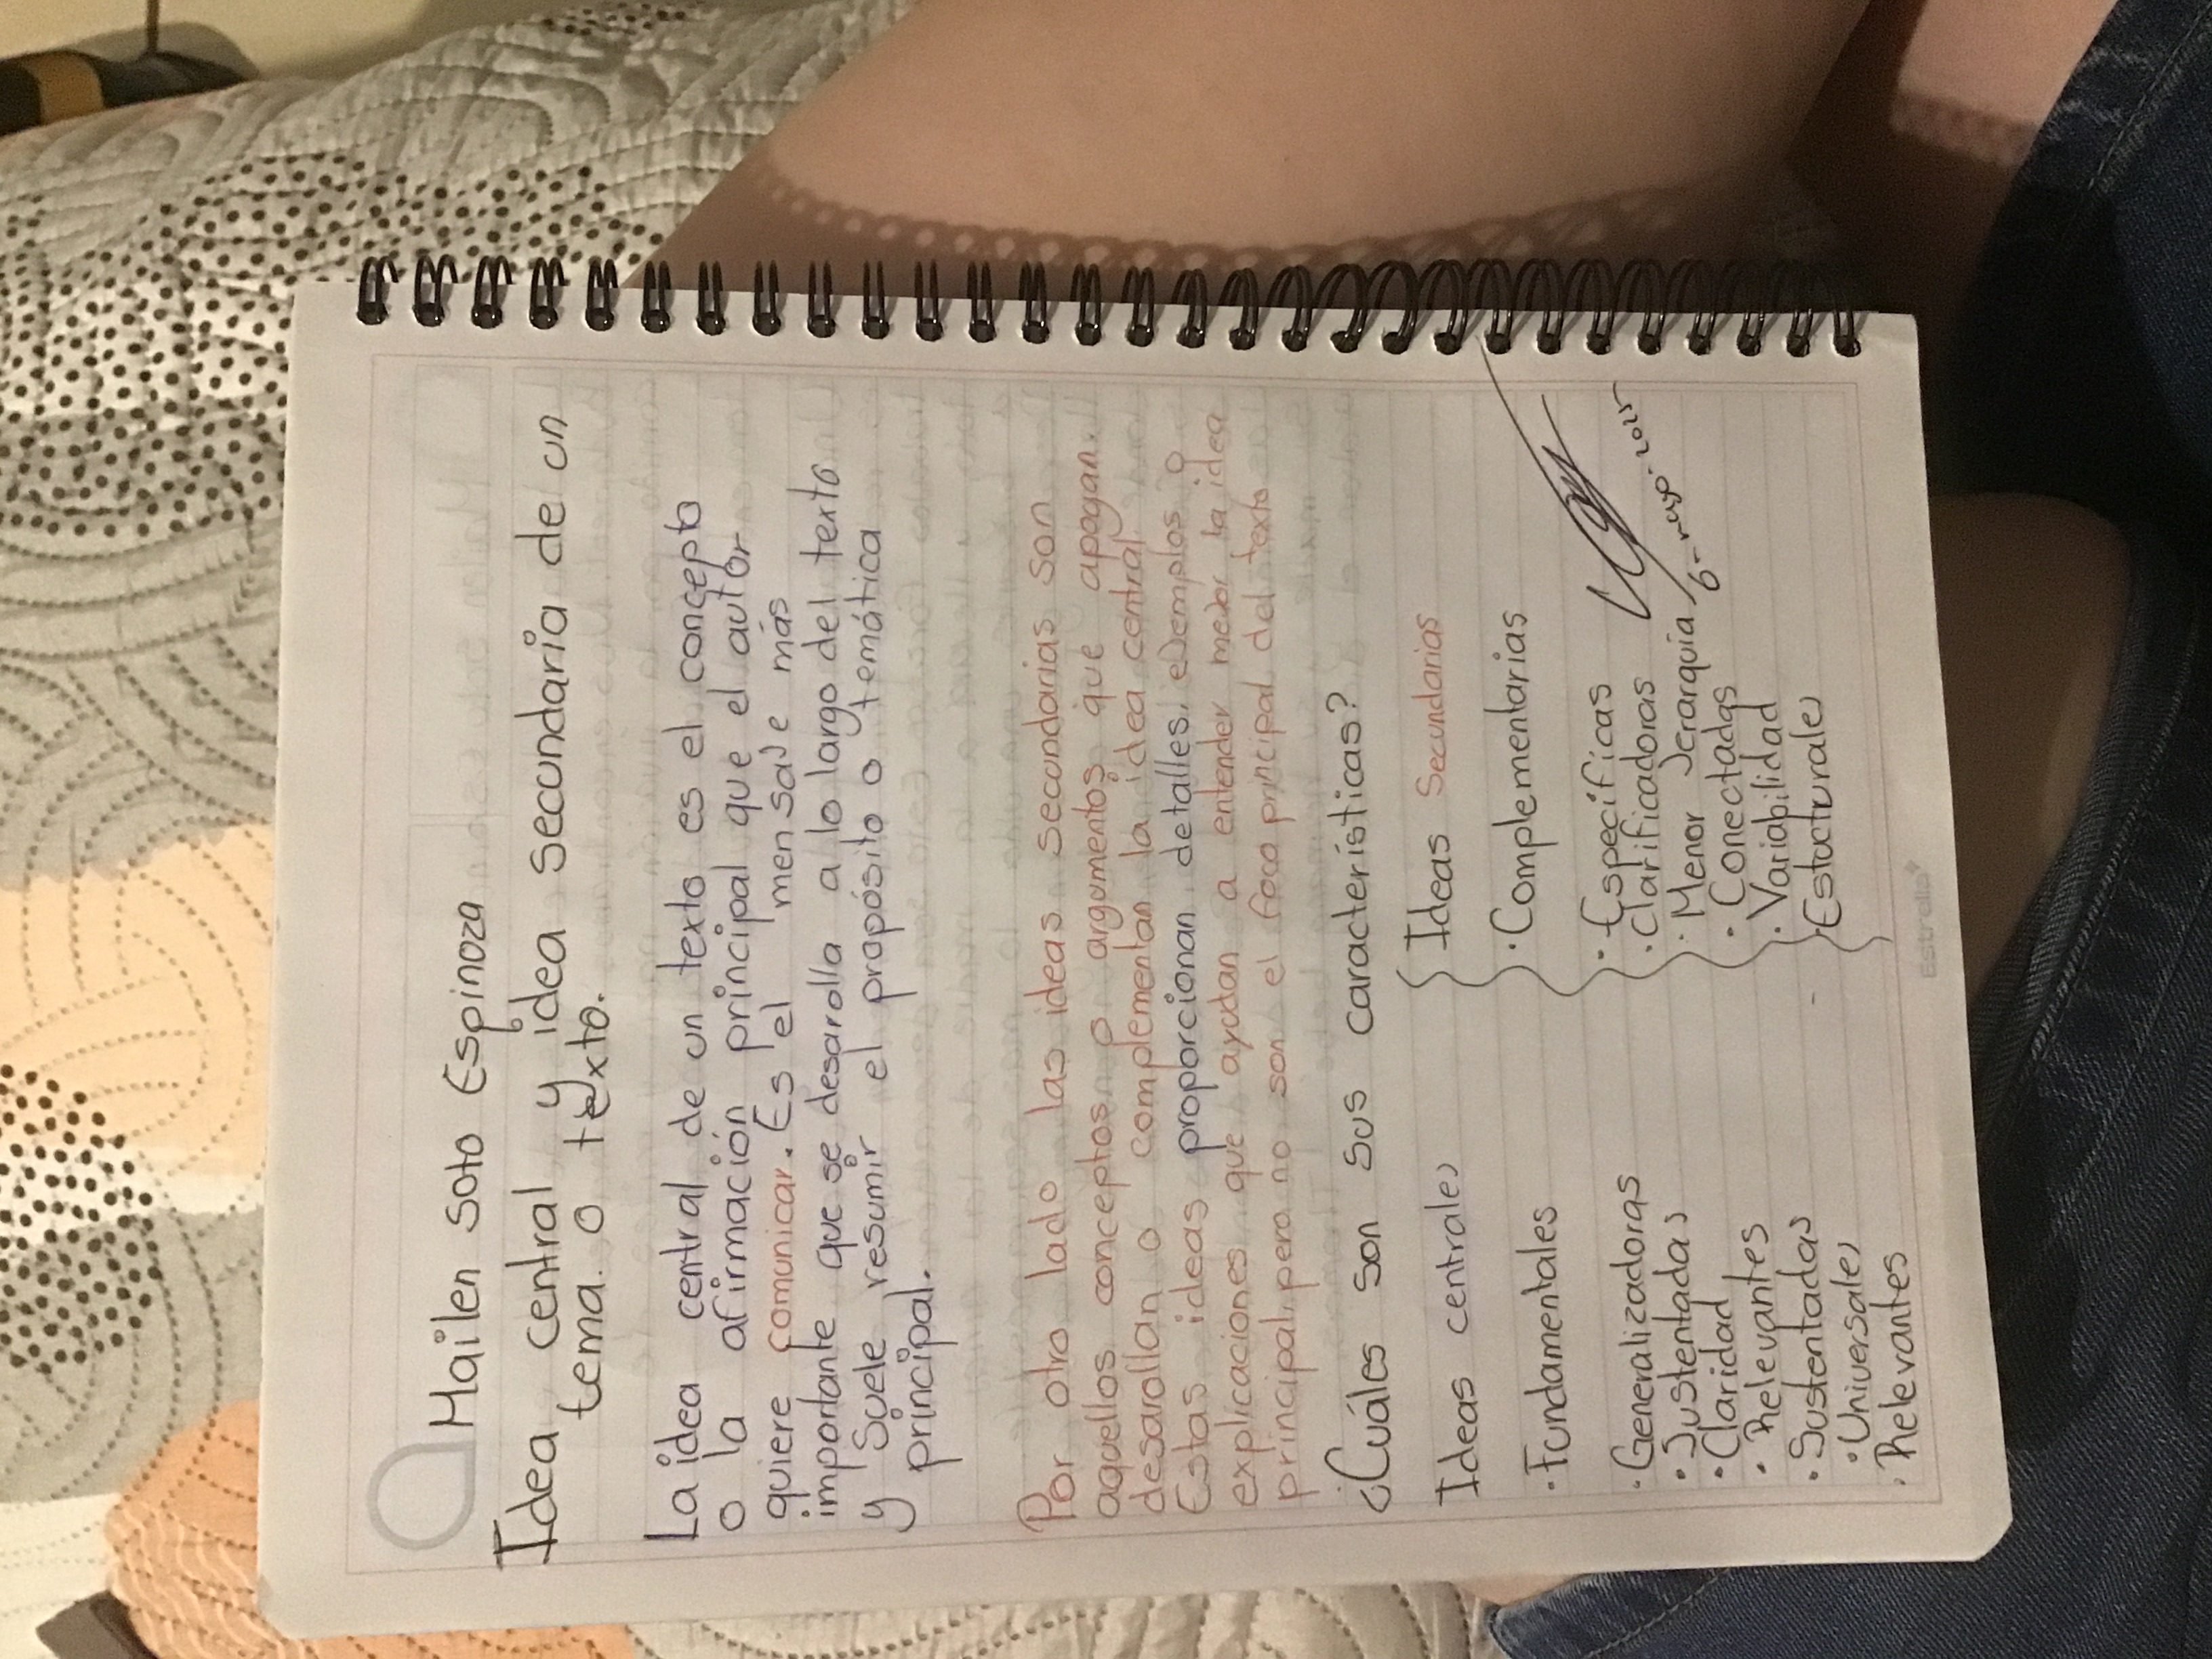 Mailen Soto Espinoza
Idea central y idea secundaria de un
tema o texto.
La idea central de un texto es el concepto
o la afirmación principal que el autor
quiere comunicar. Es el mensaje más
importante que se desarolla a lo largo del texto
y Suele resumir el propósito o temática
principal.
Por otro lado las ideas secundarias son
aquellos conceptos o argumentos que apoyan
desarollan o complementan la idea central.
Estas ideas proporcionan detalles, ejemplos o
explicaciones que ayudan a entender mejor la idea
principal, pero no son el foco principal del texto
¿Cuáles son sus características?
Ideas centrales
· Fundamentales
· Generalizadoras
· Justentadas
· Claridad
· Relevantes
· Sustentadas
· Universales
· Relevantes
Ideas Secundarias
· Complementarias
· Específicas
· Clarificadoras
· Menor Jerarquía
· Conectadas
· Variabilidad
· Estucturales
6-mayo-2025
Estrella